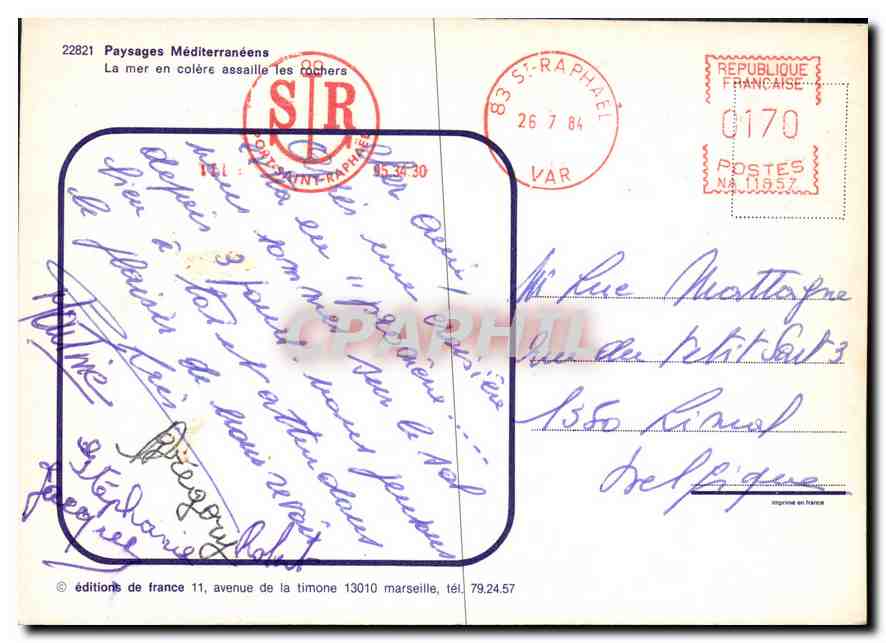 22821 Paysages Méditerranéens
La mer en colère assaille les rochers
99
S R
PORT-SAINT-RAPHAËL
TEL : 95.34.30
83 ST-RAPHAËL
26 7 84
VAR
REPUBLIQUE
FRANCAISE
0170
POSTES
NA 11857
Cher ami,
une croisière
en "pacane" ....
nous sommes sur le
depuis 3 jours, nous pensons
bien à toi et attendons
le plaisir de vous revoir
très
Martine
Grégory
Stéphanie
Robert
Jacques
Mr Luc Mattagne
rue du Petit Sart 3
1350 Limal
Belgique
CPAPHIL
imprimé en france
© éditions de france 11, avenue de la timone 13010 marseille, tél. 79.24.57